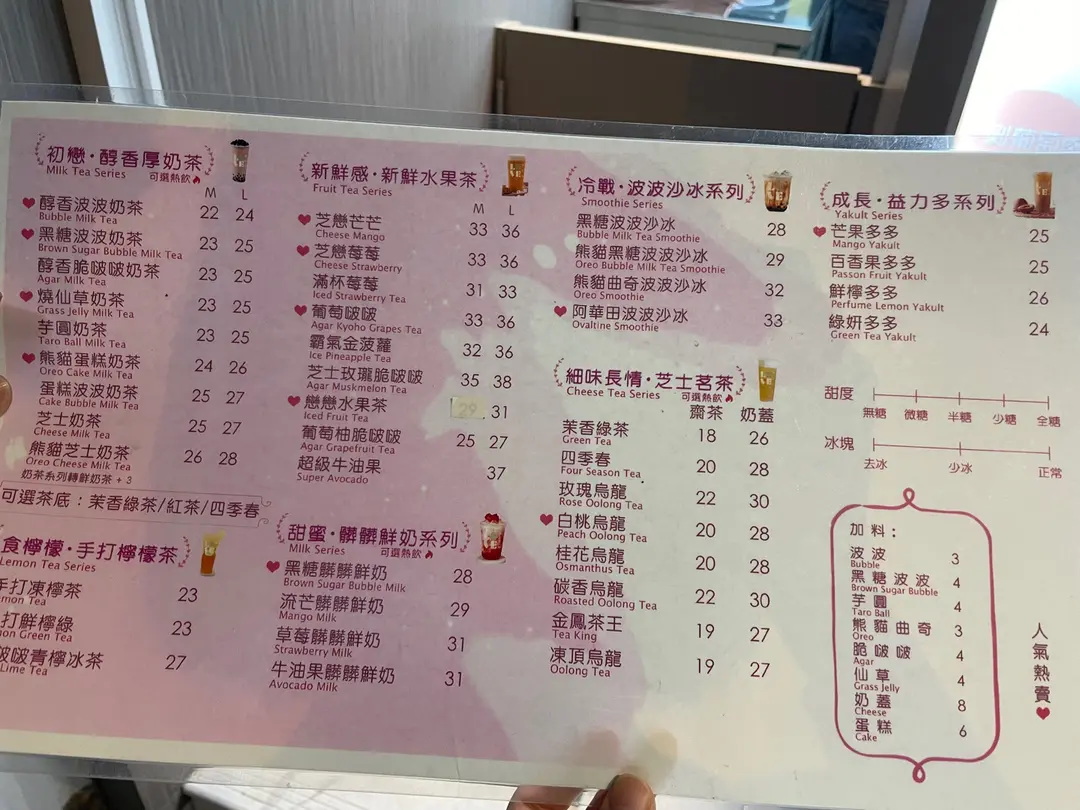 初戀·醇香厚奶茶
Milk Tea Series 可選熱飲
M L
醇香波波奶茶 22 24
Bubble Milk Tea
黑糖波波奶茶 23 25
Brown Sugar Bubble Milk Tea
醇香脆啵啵奶茶 23 25
Agar Milk Tea
燒仙草奶茶 23 25
Grass Jelly Milk Tea
芋圓奶茶 23 25
Taro Ball Milk Tea
熊貓蛋糕奶茶 24 26
Oreo Cake Milk Tea
蛋糕波波奶茶 25 27
Cake Bubble Milk Tea
芝士奶茶 25 27
Cheese Milk Tea
熊貓芝士奶茶 26 28
Oreo Cheese Milk Tea
奶茶系列轉鮮奶茶 + 3
可選茶底：茉香綠茶/紅茶/四季春
食檸檬·手打檸檬茶
Lemon Tea Series
手打凍檸茶 23
mon Tea
打鮮檸綠 23
mon Green Tea
啵啵青檸冰茶 27
Lime Tea
新鮮感·新鮮水果茶
Fruit Tea Series
M L
芝戀芒芒 33 36
Cheese Mango
芝戀莓莓 33 36
Cheese Strawberry
滿杯莓莓 31 33
Iced Strawberry Tea
葡萄啵啵 33 36
Agar Kyoho Grapes Tea
霸氣金菠蘿 32 36
Ice Pineapple Tea
芝士玫瓏脆啵啵 35 38
Agar Muskmelon Tea
戀戀水果茶 29 31
Iced Fruit Tea
葡萄柚脆啵啵 25 27
Agar Grapefruit Tea
超級牛油果 37
Super Avocado
甜蜜·髒髒鮮奶系列
Milk Series 可選熱飲
黑糖髒髒鮮奶 28
Brown Sugar Bubble Milk
流芒髒髒鮮奶 29
Mango Milk
草莓髒髒鮮奶 31
Strawberry Milk
牛油果髒髒鮮奶 31
Avocado Milk
冷戰·波波沙冰系列
Smoothie Series
黑糖波波沙冰 28
Bubble Milk Tea Smoothie
熊貓黑糖波波沙冰 29
Oreo Bubble Milk Tea Smoothie
熊貓曲奇波波沙冰 32
Oreo Smoothie
阿華田波波沙冰 33
Ovaltine Smoothie
細味長情·芝士茗茶
Cheese Tea Series 可選熱飲
齋茶 奶蓋
茉香綠茶 18 26
Green Tea
四季春 20 28
Four Season Tea
玫瑰烏龍 22 30
Rose Oolong Tea
白桃烏龍 20 28
Peach Oolong Tea
桂花烏龍 20 28
Osmanthus Tea
碳香烏龍 22 30
Roasted Oolong Tea
金鳳茶王 19 27
Tea King
凍頂烏龍 19 27
Oolong Tea
成長·益力多系列
Yakult Series
芒果多多 25
Mango Yakult
百香果多多 25
Passon Fruit Yakult
鮮檸多多 26
Perfume Lemon Yakult
綠妍多多 24
Green Tea Yakult
甜度
無糖 微糖 半糖 少糖 全糖
冰塊
去冰 少冰 正常
加料：
波波 3
Bubble
黑糖波波 4
Brown Sugar Bubble
芋圓 4
Taro Ball
熊貓曲奇 3
Oreo
脆啵啵 4
Agar
仙草 4
Grass Jelly
奶蓋 8
Cheese
蛋糕 6
Cake
人氣熱賣